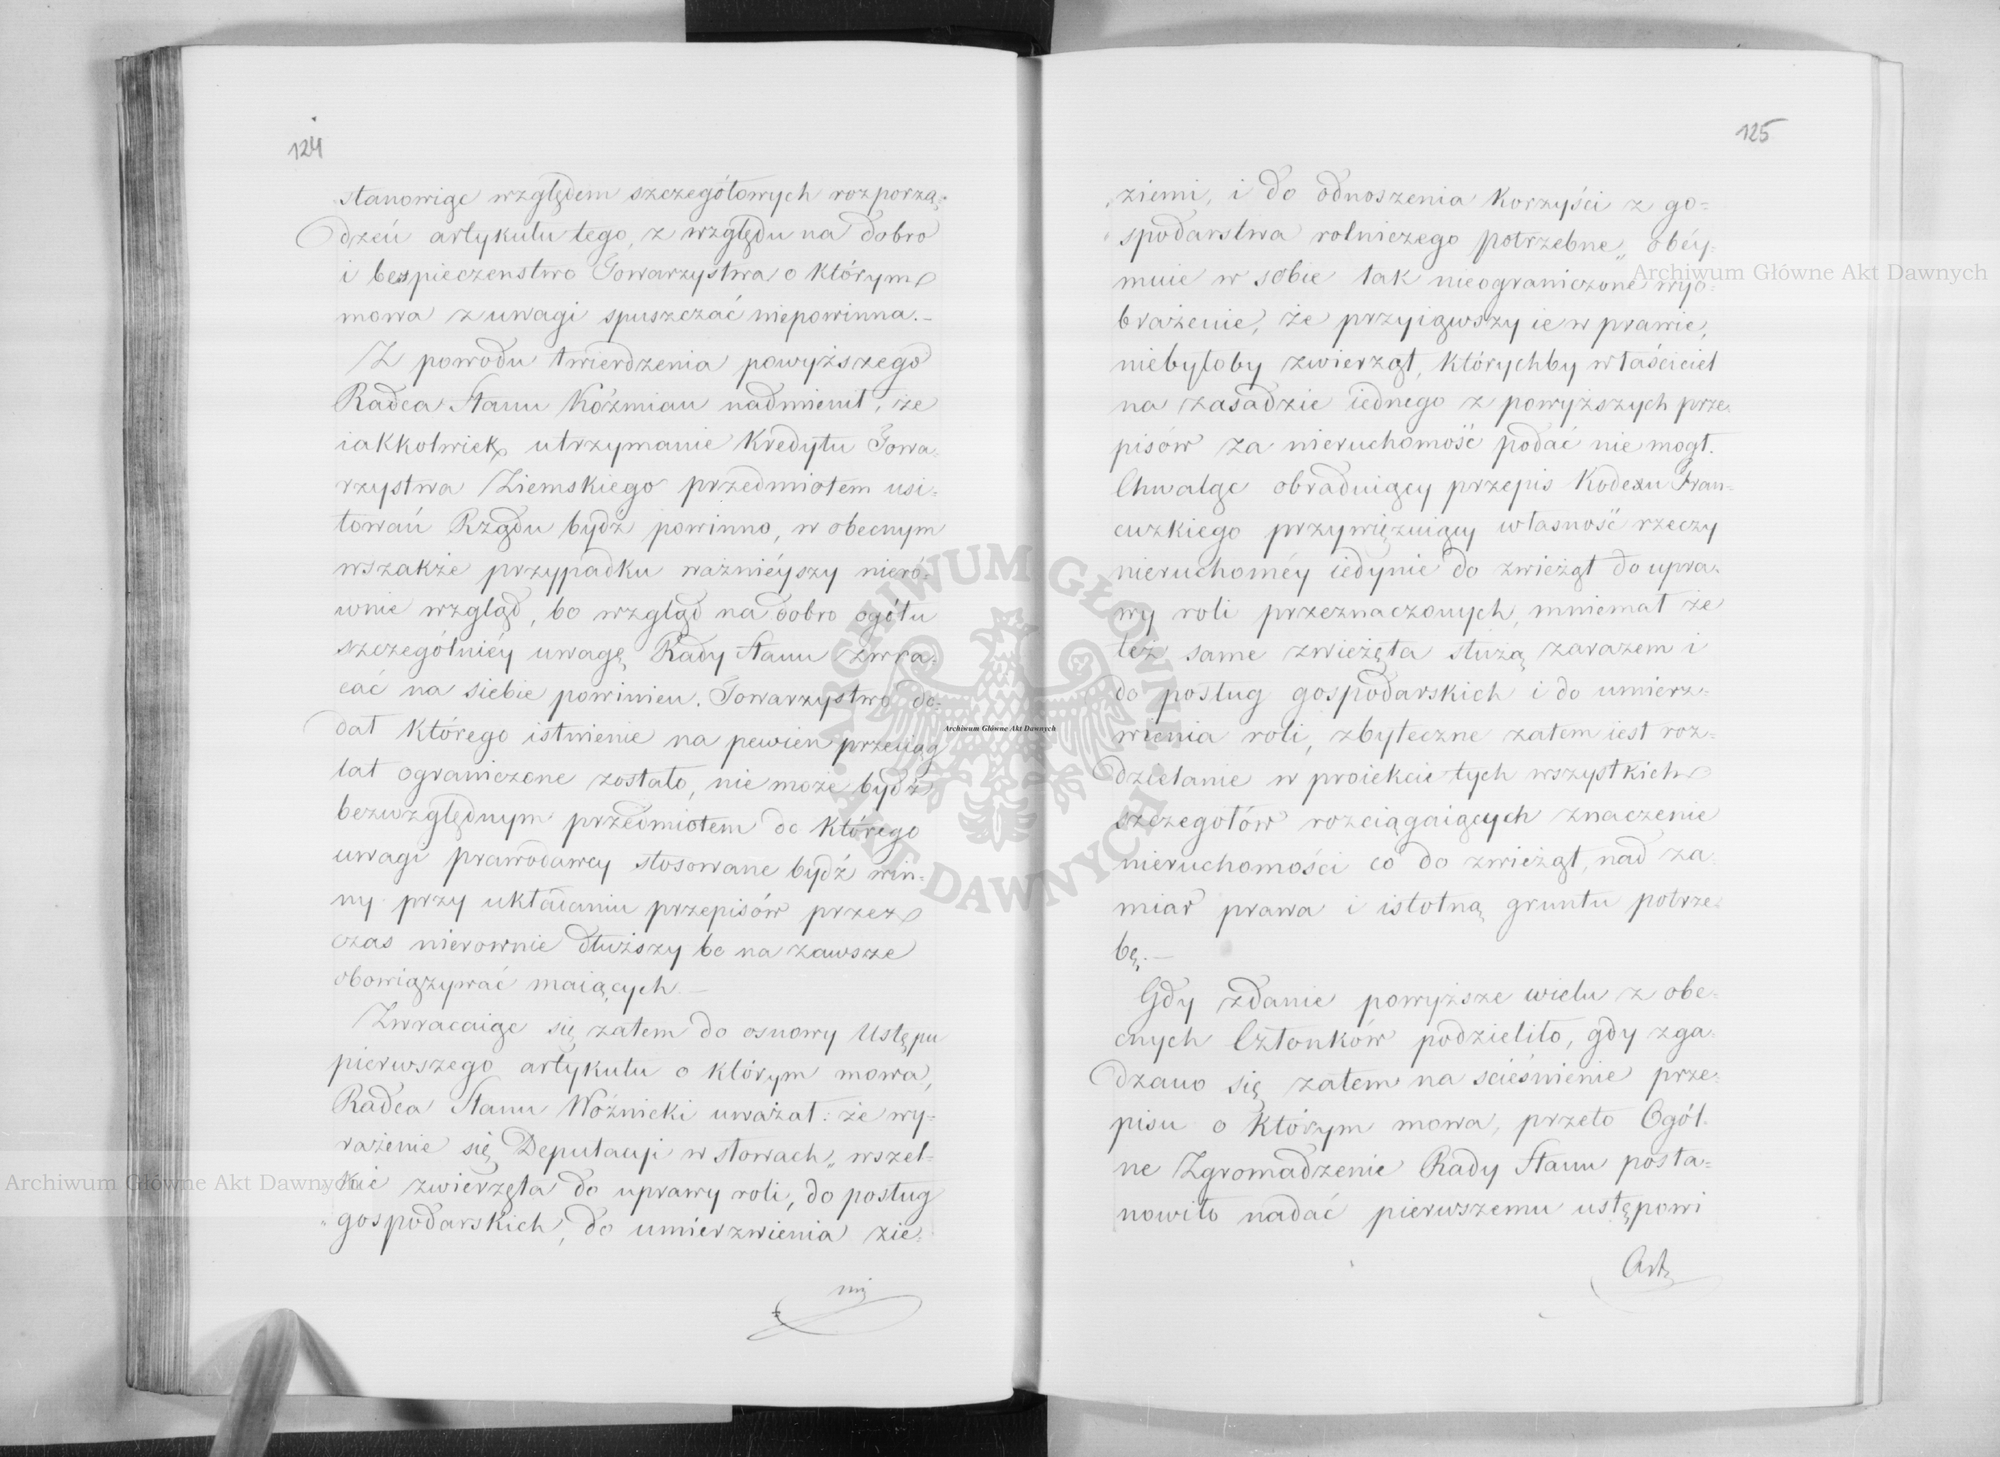 124
stanowiąc względem szczegółowych rozporzą-
dzeń artykułu tego, z względu na dobro
i bespieczenstwo Towarzystwa o którym
mowa z uwagi spuszczać niepowinna.–
Z powodu twierdzenia powyższego
Radca Stanu Koźmian nadmienił, że
iakkolwiek utrzymanie Kredytu Towa-
rzystwa Ziemskiego przedmiotem usi-
łowań Rządu bydź powinno, w obecnym
wszakże przypadku ważnieyszy nieró-
wnie wzgląd, bo wzgląd na dobro ogółu
szczególniéy uwagę Rady Stanu zwra-
cać na siebie powinien. Towarzystwo do-
dał którego istnienie na pewien przeciąg
lat ograniczone zostało, nie może bydź
bezwzględnym przedmiotem do którego
uwagi prawodawcy stosowane bydź win-
ny przy układaniu przepisów przez
czas nierownie dłuższy bo na zawsze
obowiązywać maiących.–
Zwracaiąc się zatem do osnowy Ustępu
pierwszego artykułu o którym mowa,
Radca Stanu Woźnicki uważał: że wy-
rażenie się Deputacyi w słowach „wszel-
kie zwierzęta do uprawy roli, do posług
„gospodarskich, do umierzwienia zie-
mi
125
„ziemi, i do odnoszenia korzyści z go-
„spodarstwa rolniczego potrzebne„ obéy-
muie w sobie tak nieograniczone wyo-
brażenie, że przyiąwszy ie w prawie,
niebyłoby zwierząt, którychby właściciel
na zasadzie iednego z powyższych prze-
pisów za nieruchomość podać nie mogł.
Chwaląc obraduiący przepis Kodexu Fran-
cuzkiego przywięzuiący własność rzeczy
nieruchoméy iedynie do zwieżąt do upra-
wy roli przeznaczonych, mniemał że
też same zwieżęta służą zarazem i
do posług gospodarskich i do umierz-
wienia roli, zbyteczne zatem iest roz-
dzielanie w proiekcie tych wszystkich
szczegołów rozciągaiących znaczenie
nieruchomości co do zwieżąt, nad za-
miar prawa i istotną gruntu potrze-
bę.–
Gdy zdanie powyższe wielu z obe-
cnych Członków podzieliło, gdy zga-
dzano się zatem na scieśnienie prze-
pisu o którym mowa, przeto Ogól-
ne Zgromadzenie Rady Stanu posta-
nowiło nadać pierwszemu ustępowi
Art.
Archiwum Główne Akt Dawnych
Archiwum Główne Akt Dawnych
Archiwum Główne Akt Dawnych
ARCHIWUM GŁÓWNE AKT DAWNYCH